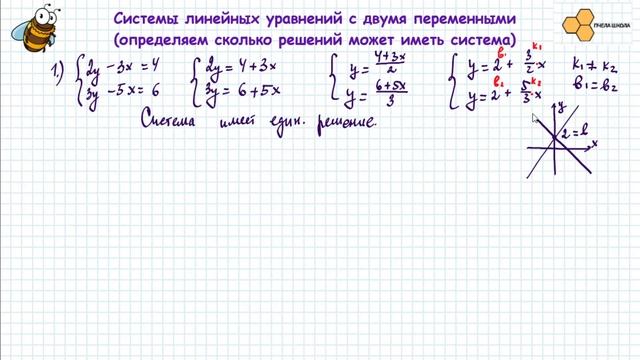 Системы линейных уравнений с двумя переменными
(определяем сколько решений может иметь система)
ПЧЕЛА ШКОЛА
1.) { 2y - 3x = 4 { 2y = 4 + 3x { y = (4+3x)/2 { y = 2 + 3/2 · x b₁ k₁ k₁ ≠ k₂
3y - 5x = 6 3y = 6 + 5x y = (6+5x)/3 y = 2 + 5/3 · x b₂ k₂ b₁ = b₂
Система имеет един. решение.
y
2 = b
x